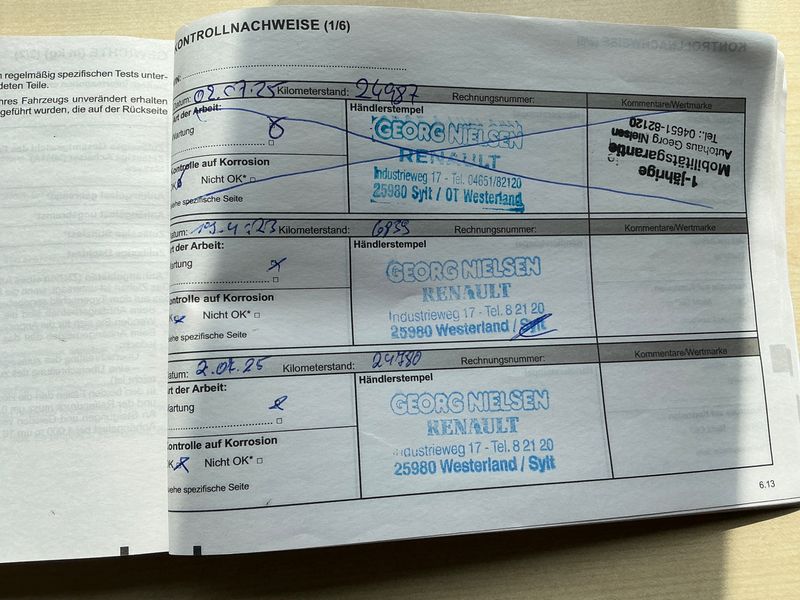 n regelmäßig spezifischen Tests unter-
deten Teile.
nres Fahrzeugs unverändert erhalten
geführt wurden, die auf der Rückseite
KONTROLLNACHWEISE (1/6)
IN:
Datum: 02.07.25 Kilometerstand: 24987 Rechnungsnummer: Kommentare/Wertmarke
Art der Arbeit: Händlerstempel
Wartung
GEORG NIELSEN
RENAULT
Industrieweg 17 - Tel. 04651/82120
25980 Sylt / OT Westerland
1-jährige
Mobilitätsgarantie
Autohaus Georg Nielsen
Tel.: 04651-82120
Kontrolle auf Korrosion
OK Nicht OK*
siehe spezifische Seite
Datum: 19.4.23 Kilometerstand: 6939 Rechnungsnummer: Kommentare/Wertmarke
Art der Arbeit: Händlerstempel
Wartung
GEORG NIELSEN
RENAULT
Industrieweg 17 - Tel. 8 21 20
25980 Westerland / Sylt
Kontrolle auf Korrosion
OK Nicht OK*
siehe spezifische Seite
Datum: 2.07.25 Kilometerstand: 24780 Rechnungsnummer: Kommentare/Wertmarke
Art der Arbeit: Händlerstempel
Wartung
GEORG NIELSEN
RENAULT
Industrieweg 17 - Tel. 8 21 20
25980 Westerland / Sylt
Kontrolle auf Korrosion
OK Nicht OK*
siehe spezifische Seite
6.13